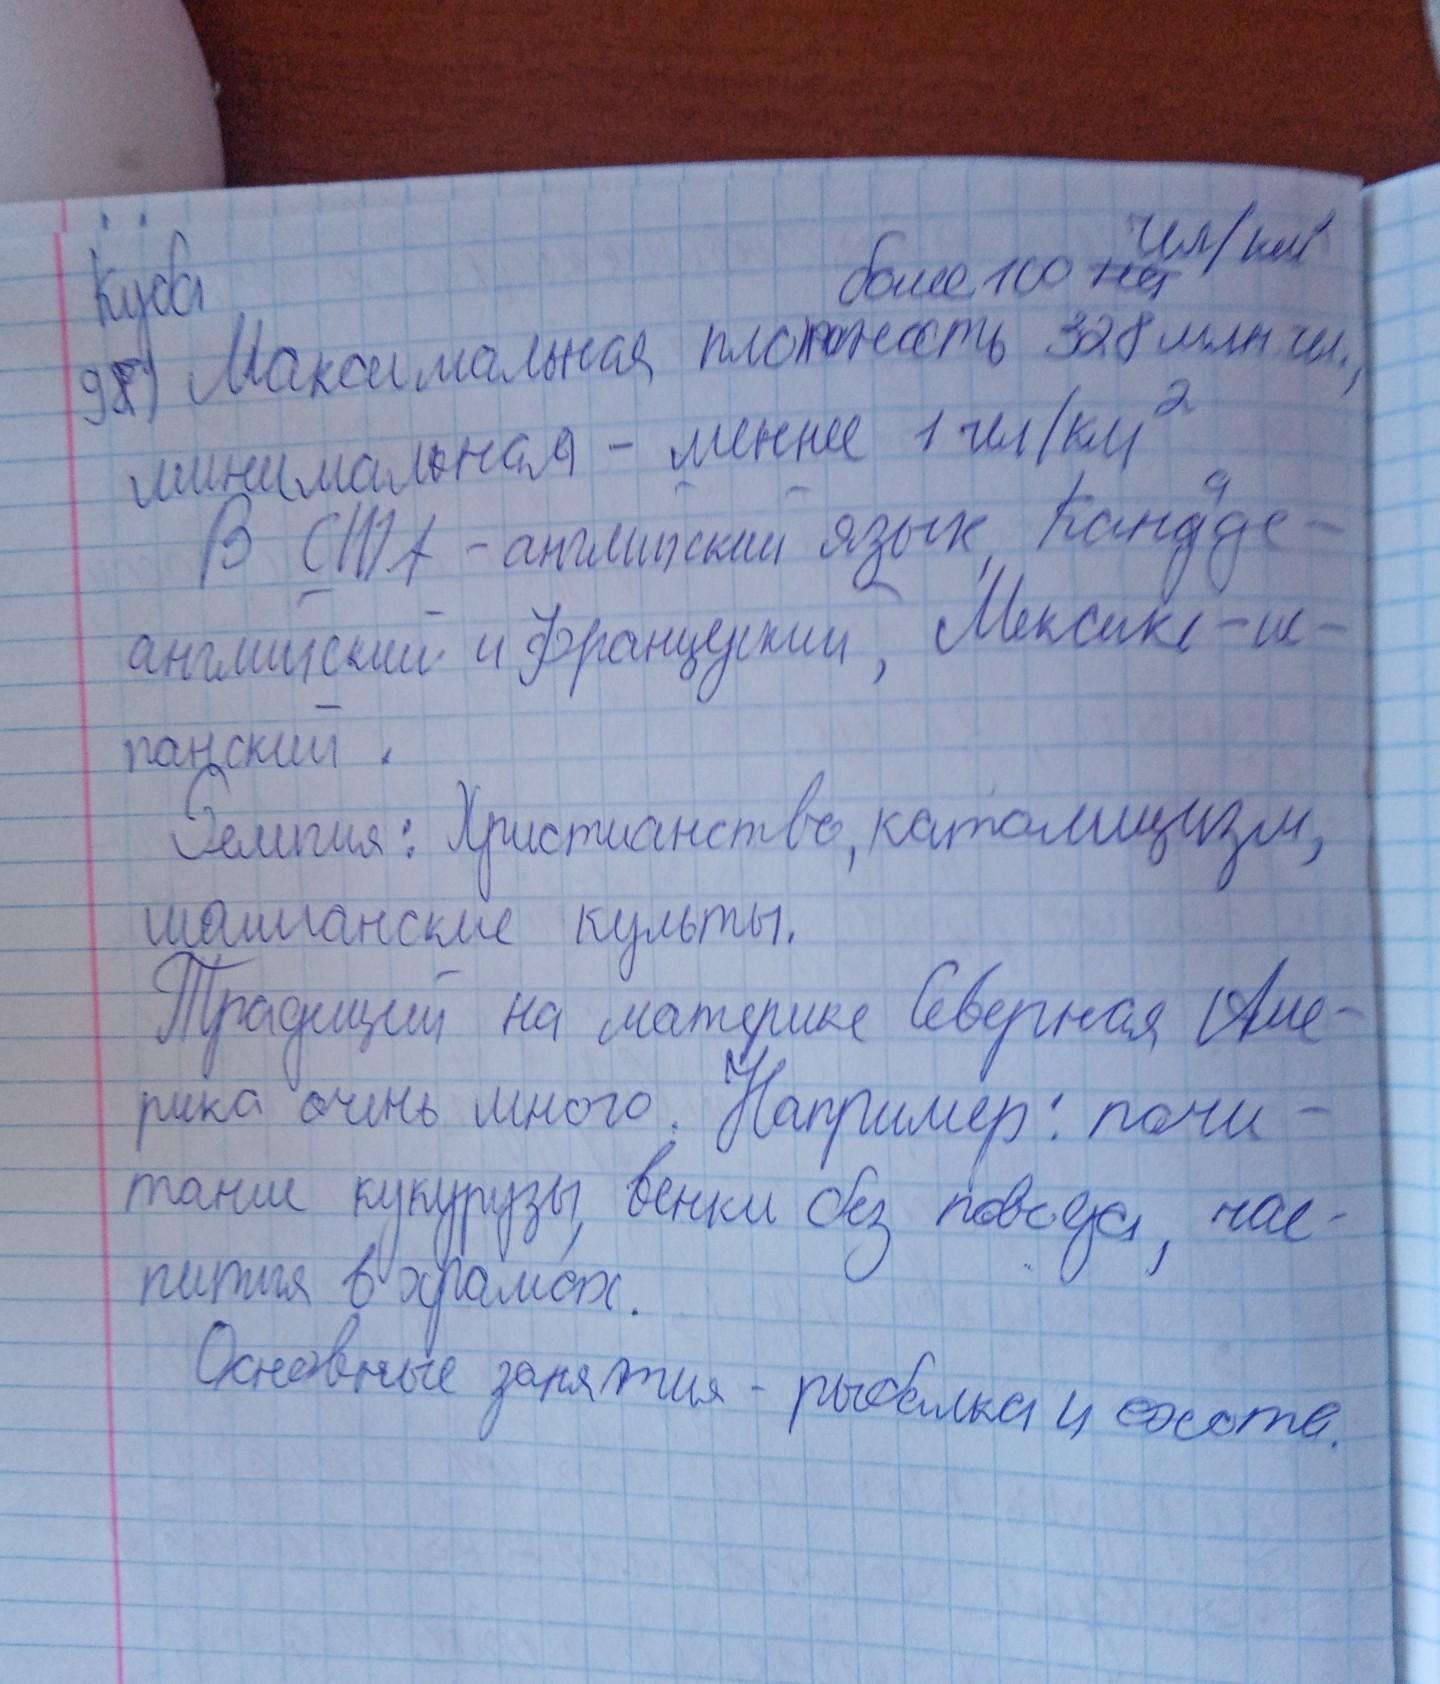 Куба
более 100 чел/км²
98) Максимальная плотность 328 млн чел.,
минимальная - менее 1 чел/км²
В США - английский язык, Канаде -
английский и французский, Мексике - ис-
панский.
Религия: Христианство, католицизм,
шаманские культы.
Традиций на материке Северная Аме-
рика очень много. Например: почи-
тание кукурузы, венки без повода, чае-
пития в храмах.
Основные занятия - рыбалка и охота.